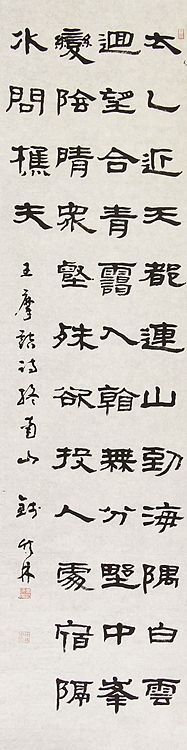 太乙近天都連山到海隅白雲
迴望合青靄入看無分野中峯
變陰晴衆壑殊欲投人處宿隔
水問樵夫
王摩詰詩終南山